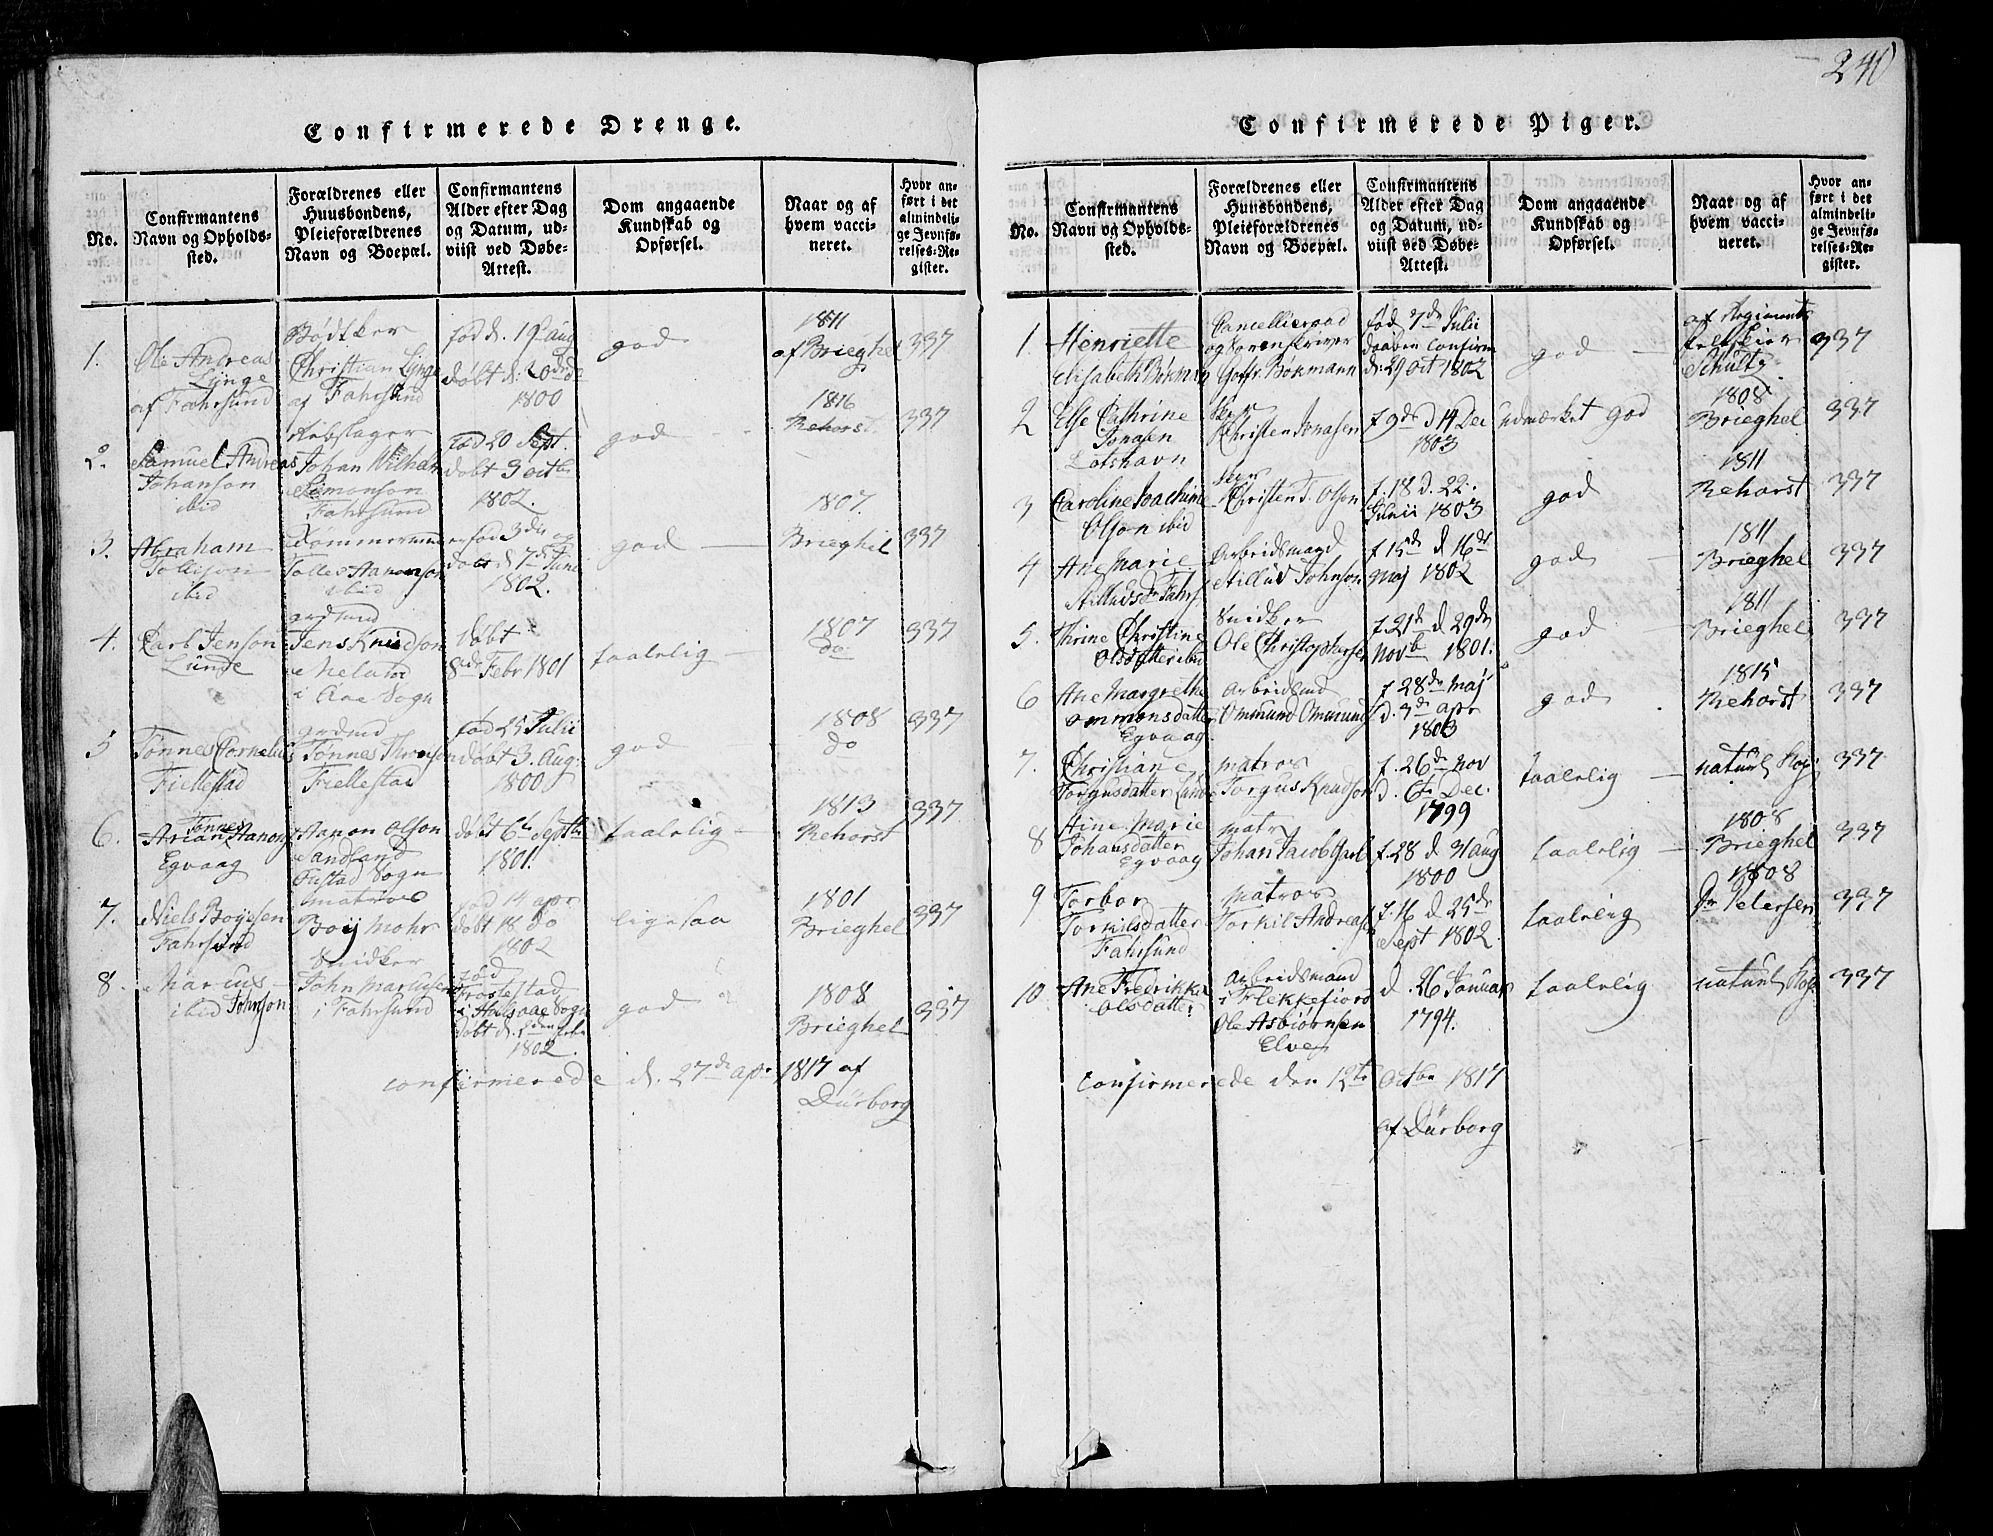 240
Confirmerede Drenge.
No.
Confirmantens
Navn og Opholds-
sted.
Forældrenes eller
Huusbondens,
Pleieforældrenes
Navn og Boepæl.
Confirmantens
Alder efter Dag
og Datum, ud-
viist ved Døbe-
Attest.
Dom angaaende
Kundskab og
Opførsel.
Naar og af
hvem vacci-
neret.
Hvor an-
ført i det
almindeli-
ge Jevnfø-
relses-Re-
gister.
1.
Ole Andreas
Lynge
af Fahrsund
Bødtker
Christian Lynge
af Fahrsund
fød d. 19 Aug
døbt d. 20de do
1800
god
1811
af Brieghel
337
2.
Samuel Andreas
Johanson
ibid
Rebslager
Johan Wilhelm
Simonson
Fahrsund
fød 20 Sept.
døbt 3 octbr
1802.
god
1816
Rehorst
337
3.
Abraham
Tollison
ibid
Tømmermand
Tolles Aanonson
ibid
fød 3die og
døbt d 7de Juni
1802.
god
1807.
Brieghel
337
4.
Carl Jenson
Lunde
grdmd
Jens Knudson
i Aae Sogn
døbt
8de Febr 1801
taalelig
1807
do
337
5
Tønnes Cornelius
Fiellestad
grdmd
Tønnes Thorsen
Fiellestad
fød 25 Julii
døbt 3. Aug:
1800
god
1808
do
337
6.
Tønnes
Arian Aanons
Egvaag
Aanon Olson
Sandland
Fustad Sogn
døbt 6te Septbr
1801.
taalelig
1813
Rehorst
337
7.
Niels Boyesen
Fahrsund
matros
Boy Mohr
fød 14 apr
døbt 18 do
1802
ligesaa
1801
Brieghel
337
8.
Marcus
ibid Johnson
Snidker
John Marcussen
i Fahrsund
fød
Frostestad
i Halsaae Sogn
døbt d. 2den
1802.
god
1808
Brieghel
337
confirmerede d. 27de apr 1817 af
Dürborg
Confirmerede Piger.
No.
Confirmantens
Navn og Opholds-
sted.
Forældrenes eller
Huusbondens,
Pleieforældrenes
Navn og Boepæl.
Confirmantens
Alder efter Dag
og Datum, ud-
viist ved Døbe-
Attest.
Dom angaaende
Kundskab og
Opførsel.
Naar og af
hvem vacci-
neret.
Hvor an-
ført i det
almindeli-
ge Jevnfø-
relses-Re-
gister.
1
Henriette
Elisabeth Bøkman
Cancellieraad
og Sorenskriver
Bøkmann
fød 7de Julii
daaben Confirm
d: 29 oct 1802
god
af Regiments
Feltskier
Schultz
337
2
Else Cathrine
Jonasen
Lotshavn
Skpr
Christen Jonasen
f 9de d 14 Dec
1803
udmærket god
1808
Brieghel
337
3
Caroline Joachime
Olson ibid
Skpr
Christen T. Olson
f. 18 d. 22.
Junii 1803
god
1811
Rehorst
337
4
Ane Marie
Arbeidsmand
Atillius Johnson
f 15de d 16de
Maj 1802
god
1811
Brieghel
337
5.
Thrine Christine
Olsdatter ibid
Snidker
Ole Christophersen
f. 21de d 29de
Novb 1801.
god
1811
Brieghel
337
6
Ane Margrethe
Ommonsdatter
Egvaag
Arbeidsmd
Ommund Ommunds
f 28de Maj
d. 3de apr
1803
god
1815
Rehorst
337
7.
Christiane
Torgusdatter Lunde
matros
Torgus Knudson
f. 26de Nov
d. 6te Dec.
1799
taalelig
naturl Kop
337
8
Stine Marie
Johansdatter
Egvaag
matr
Johan Jacob
f. 28 d 31 aug
1800
taalelig
1808
Brieghel
337
9
Torbor
Torkilsdatter
Fahrsund
matros
Torkil Andreas
f. 16 d 25de
Sept 1802.
taalelig
1808
Dr Petersen
337
10
Ane Fredrikke
Olsdatter
Arbeidsmand
i Flekkefiord
Ole Asbiørnsen
Elve
d. 26 Januar
1794.
taalelig
naturl Kop
337
confirmerede den 12te Octbr 1817
af Dürborg